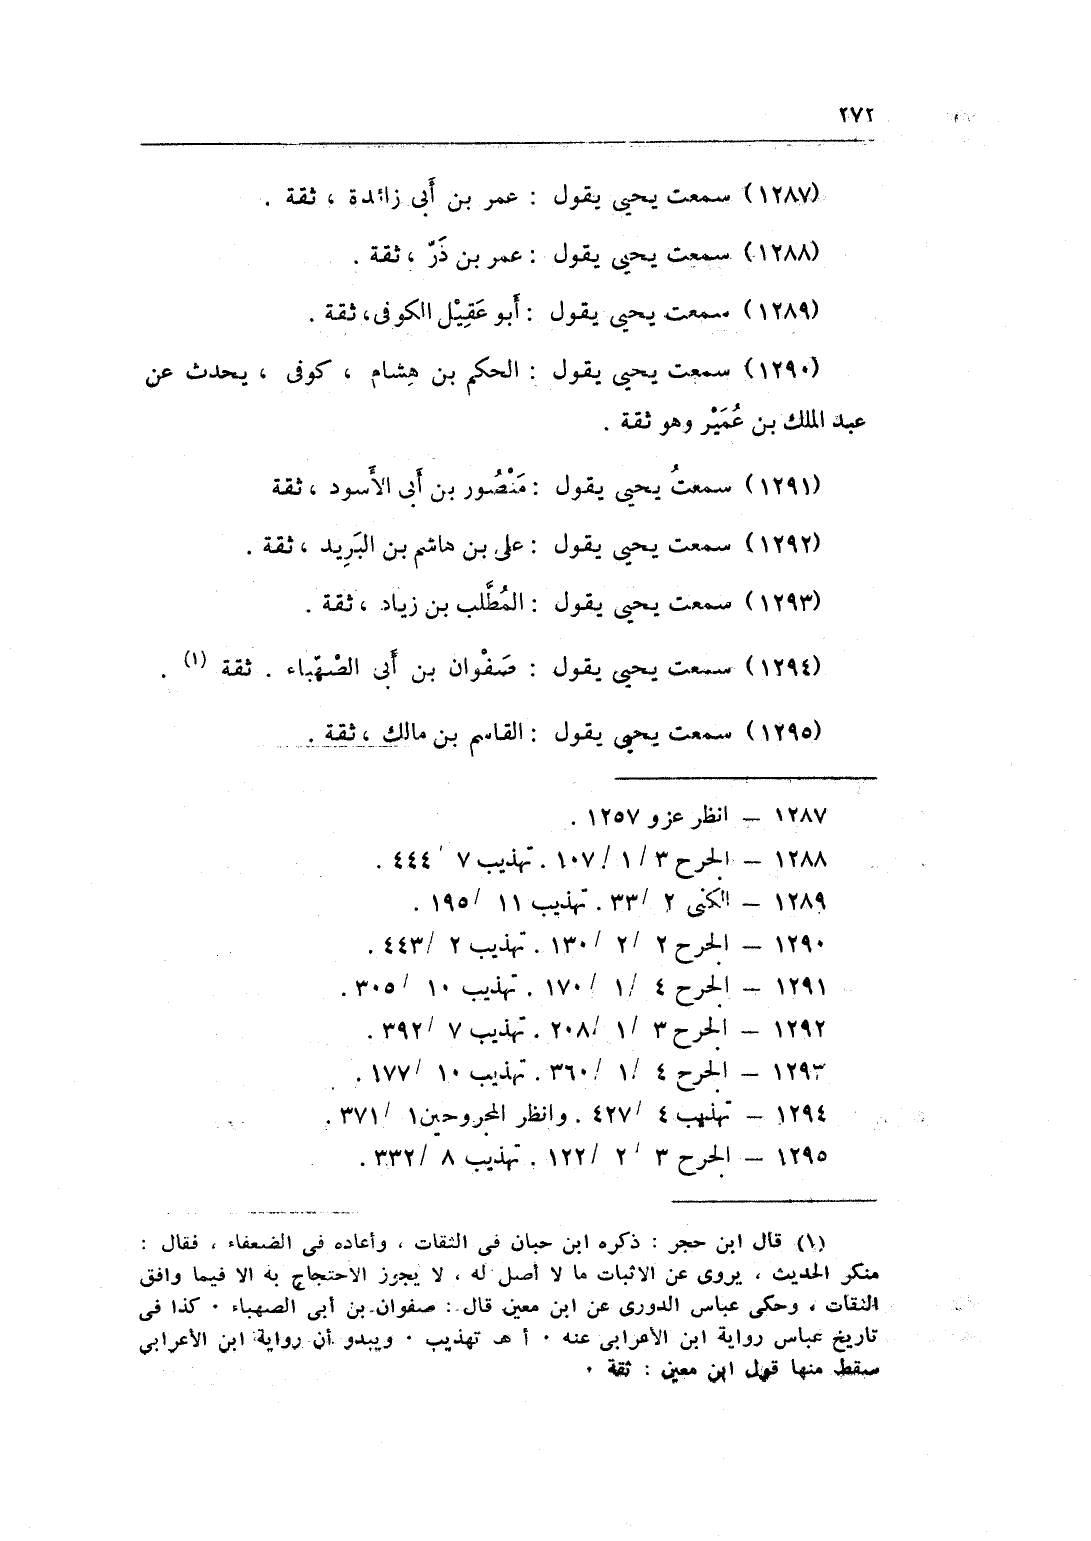 ٢٧٢
(١٢٨٧) سمعت يحيى يقول : عمر بن أَبى زائدة ، ثقة .
(١٢٨٨) سمعت يحيى يقول : عمر بن ذَرّ ، ثقة .
(١٢٨٩) سمعت يحيى يقول : أَبو عَقِيْل الكوفى، ثقة .
(١٢٩٠) سمعت يحيى يقول : الحكم بن هِشام ، كوفى ، يحدث عن
عبد الملك بن عُمَيْر وهو ثقة .
(١٢٩١) سمعتُ يحيى يقول : مَنْصُور بن أَبى الأَسود ، ثقة
(١٢٩٢) سمعت يحيى يقول : على بن هاشم بن البَرِيد ، ثقة .
(١٢٩٣) سمعت يحيى يقول : المُطَّلب بن زياد ، ثقة .
(١٢٩٤) سمعت يحيى يقول : صَفْوان بن أَبى الصْهّباء . ثقة (١) .
(١٢٩٥) سمعت يحيى يقول : القاسم بن مالك ، ثقة .
١٢٨٧ – انظر عزو ١٢٥٧ .
١٢٨٨ – الجرح ٣ /١ /١٠٧ . تهذيب ٧ / ٤٤٤ .
١٢٨٩ – الكنى ٢ /٣٣ . تهذيب ١١ /١٩٥ .
١٢٩٠ – الجرح ٢ /٢ /١٣٠ . تهذيب ٢ /٤٤٣ .
١٢٩١ – الجرح ٤ /١ /١٧٠ . تهذيب ١٠ /٣٠٥ .
١٢٩٢ – الجرح ٣ /١ /٢٠٨ . تهذيب ٧ /٣٩٢ .
١٢٩٣ – الجرح ٤ /١ /٣٦٠ . تهذيب ١٠ /١٧٧ .
١٢٩٤ – تهذيب ٤ /٤٢٧ . وانظر المجروحين١ /٣٧١ .
١٢٩٥ – الجرح ٣ /٢ /١٢٢ . تهذيب ٨ /٣٣٢ .
(١) قال ابن حجر : ذكره ابن حبان فى الثقات ، وأعاده فى الضعفاء ، فقال :
منكر الحديث ، يروى عن الاثبات ما لا أصل له ، لا يجوز الاحتجاج به الا فيما وافق
الثقات ، وحكى عباس الدورى عن ابن معين قال : صفوان بن أبى الصهباء ٠ كذا فى
تاريخ عباس رواية ابن الأعرابى عنه ٠ أ هـ تهذيب ٠ ويبدو أن رواية ابن الأعرابى
سقط منها قول ابن معين : ثقة ٠